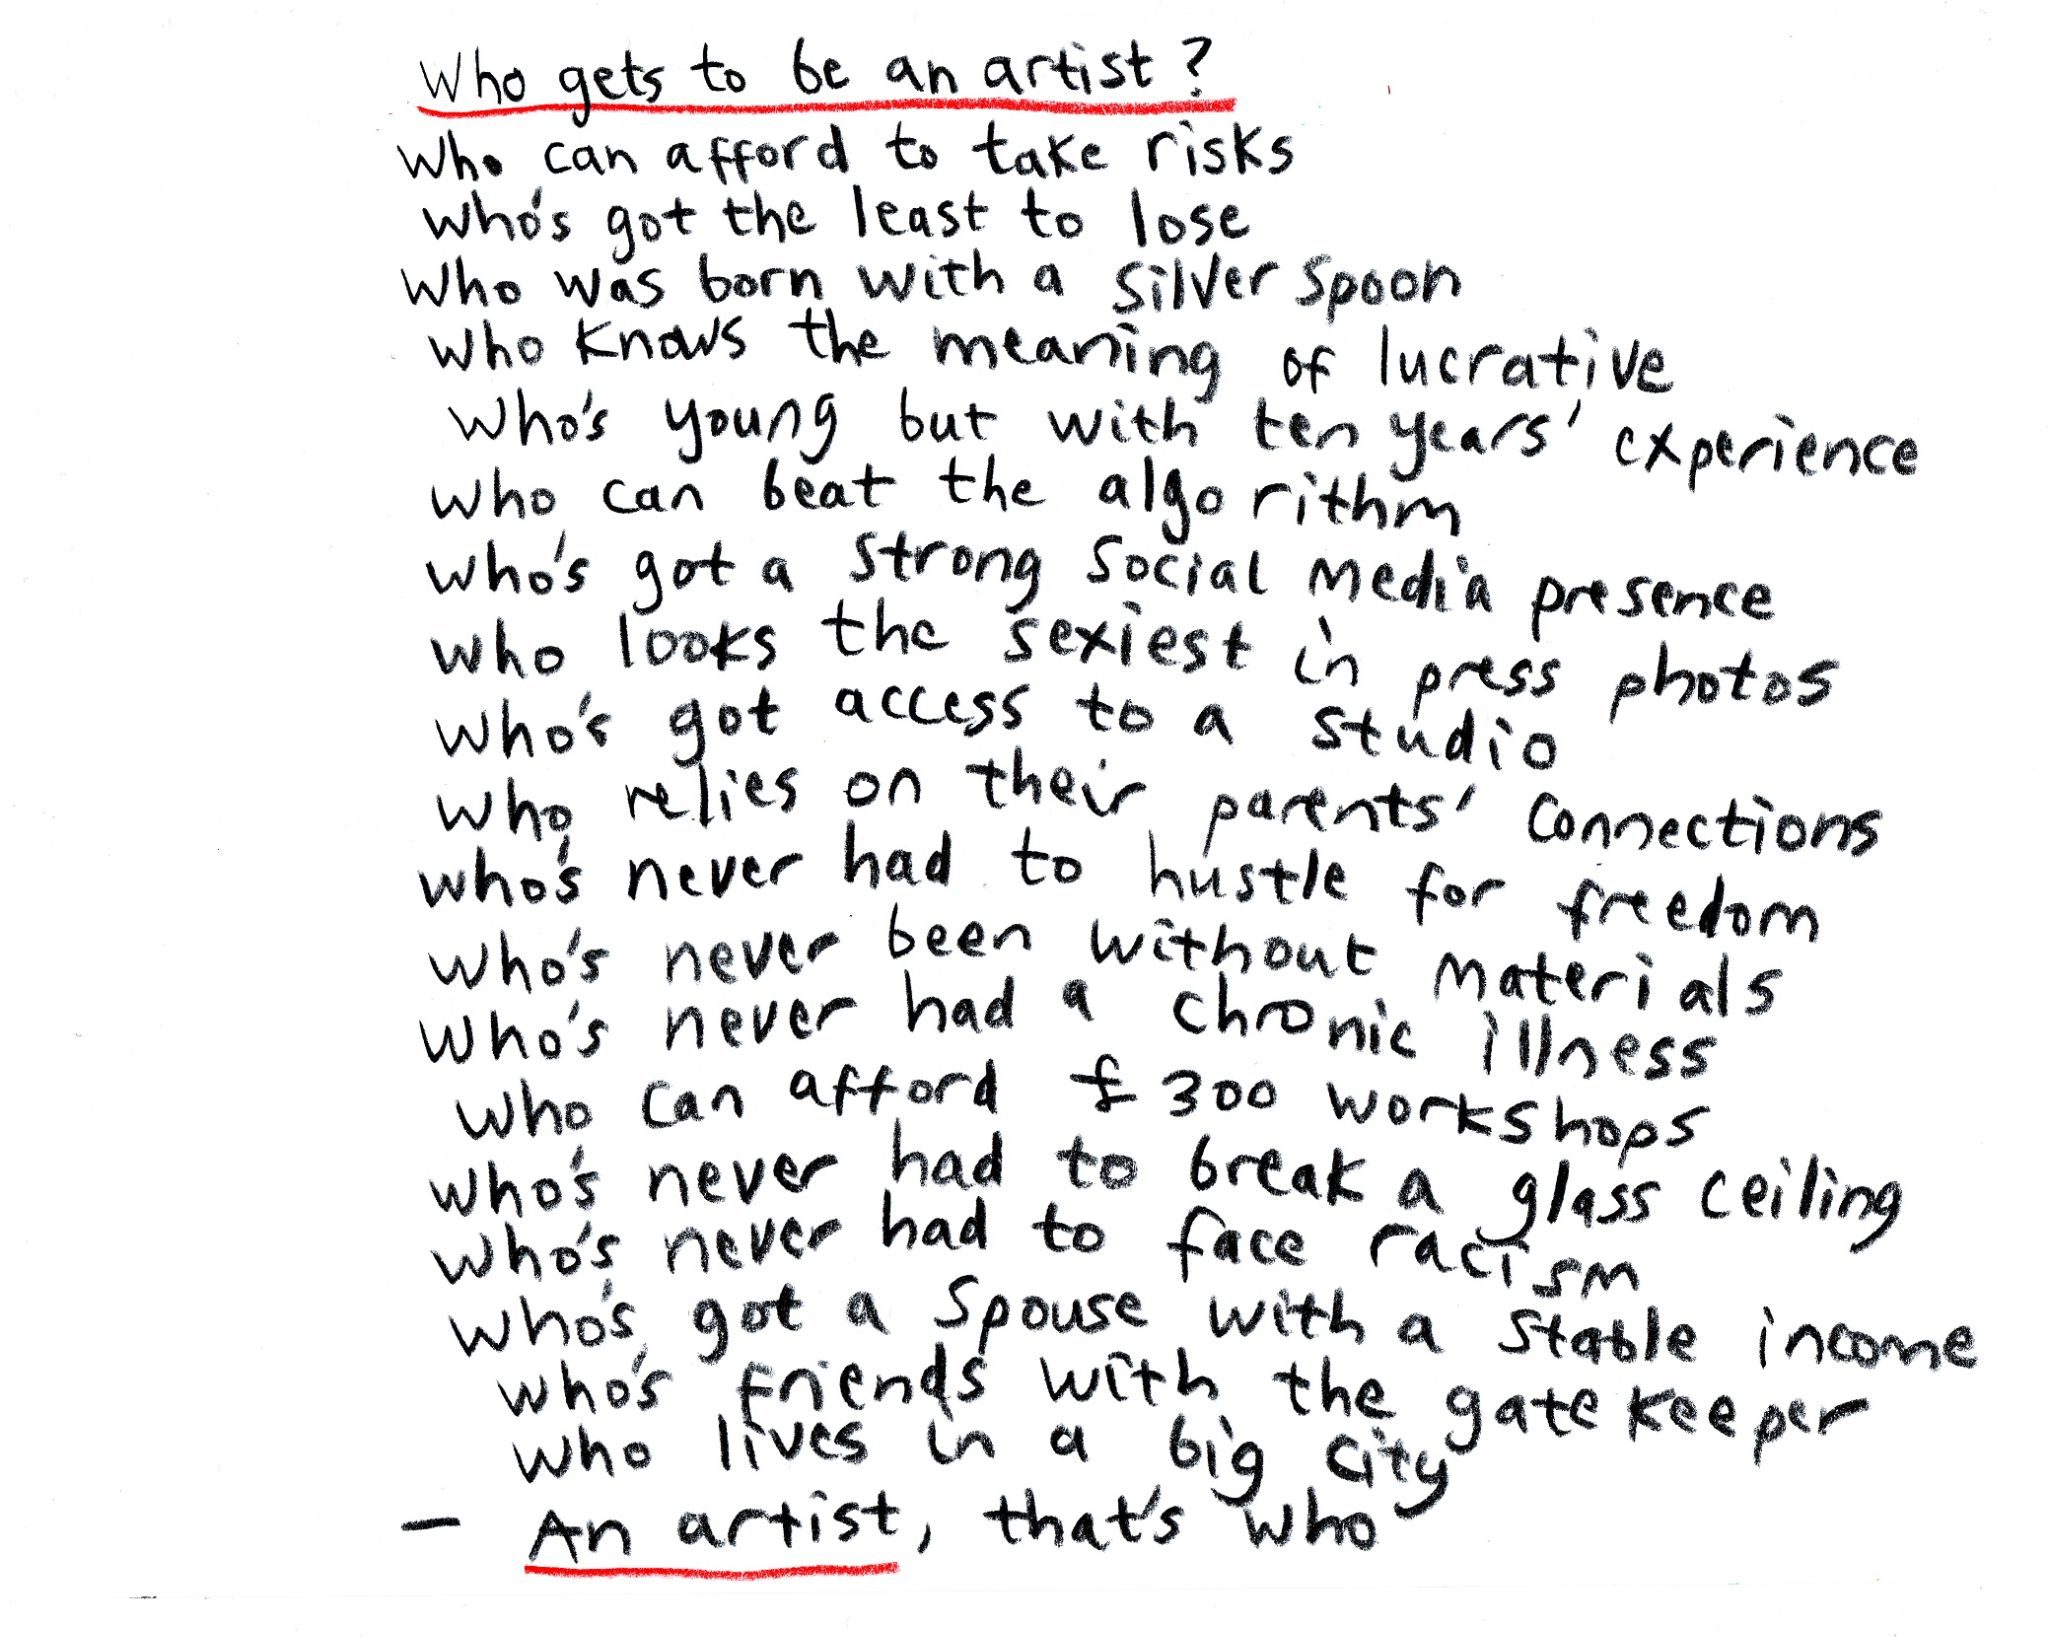 Who gets to be an artist?
Who can afford to take risks
Who's got the least to lose
Who was born with a silver spoon
Who knows the meaning of lucrative
Who's young but with ten years' experience
Who can beat the algorithm
Who's got a strong social media presence
Who looks the sexiest in press photos
Who's got access to a studio
Who relies on their parents' connections
Who's never had to hustle for freedom
Who's never been without materials
Who's never had a chronic illness
Who can afford £300 workshops
Who's never had to break a glass ceiling
Who's never had to face racism
Who's got a spouse with a stable income
Who's friends with the gatekeeper
Who lives in a big city
– An artist, that's who